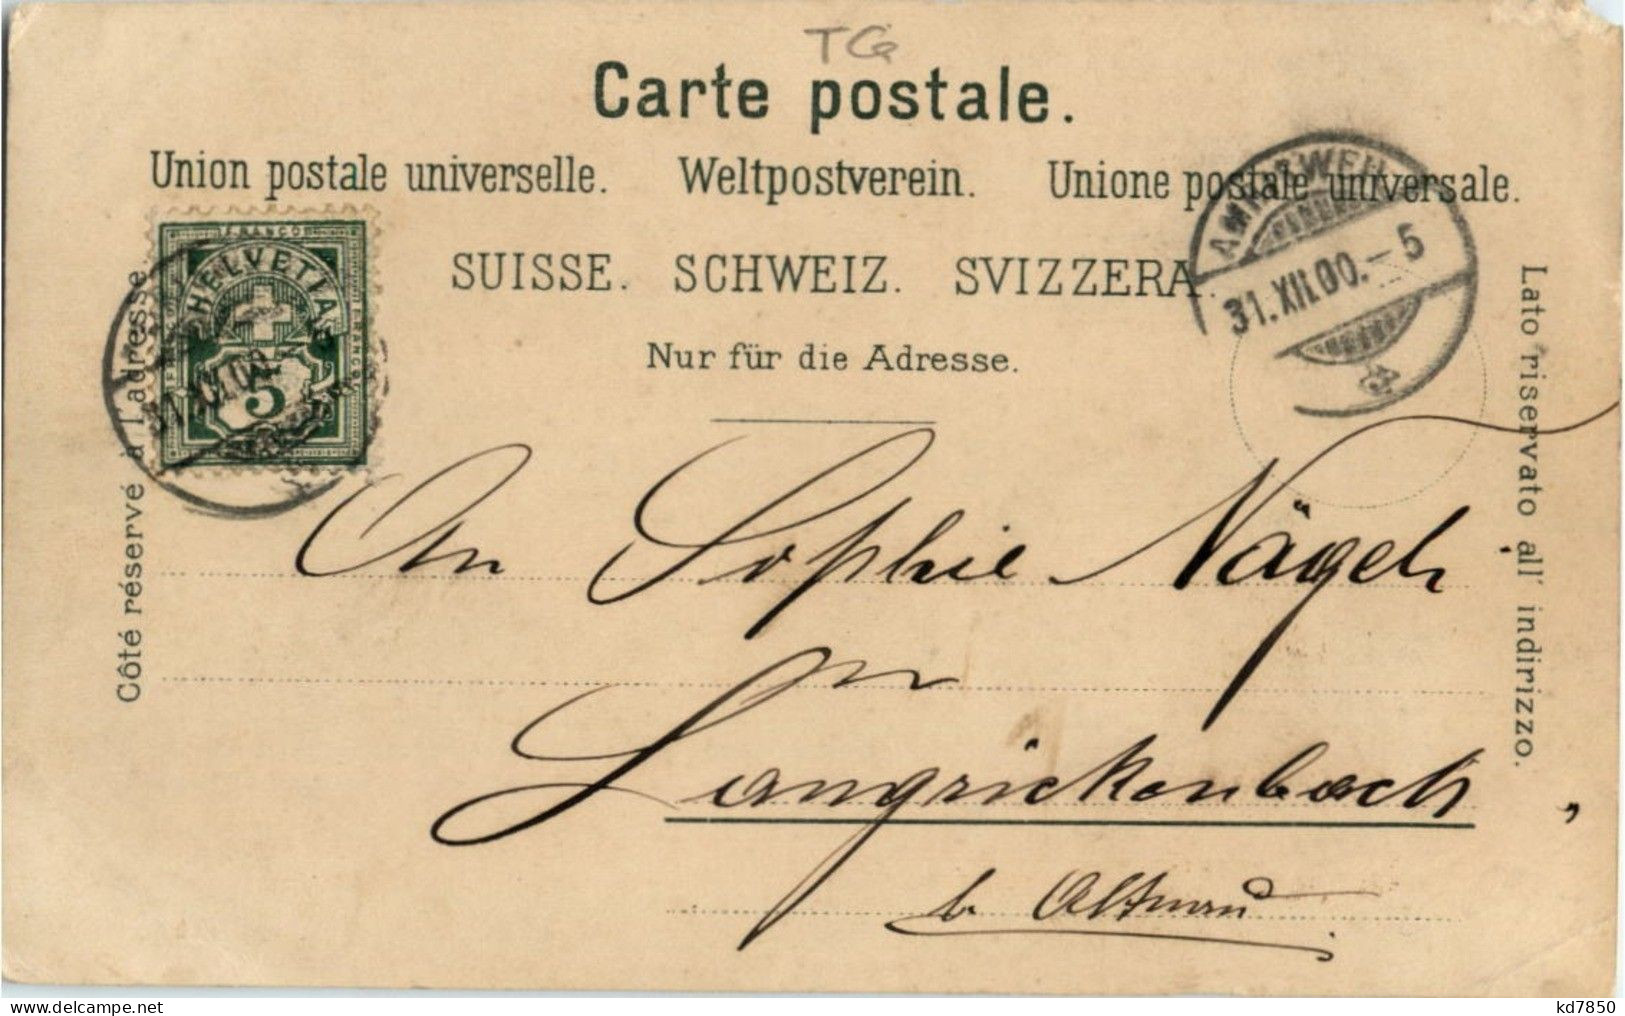 TG
Carte postale.
Union postale universelle. Weltpostverein. Unione postale universale.
SUISSE. SCHWEIZ. SVIZZERA.
Nur für die Adresse.
Côté réservé à l'adresse.
Lato riservato all' indirizzo.
FRANCO
HELVETIA
FRANCO
5
31.XII.00.-5
An Sophie Nägeli
in
Langrickenbach,
b. Altnau
www.delcampe.net
kd7850